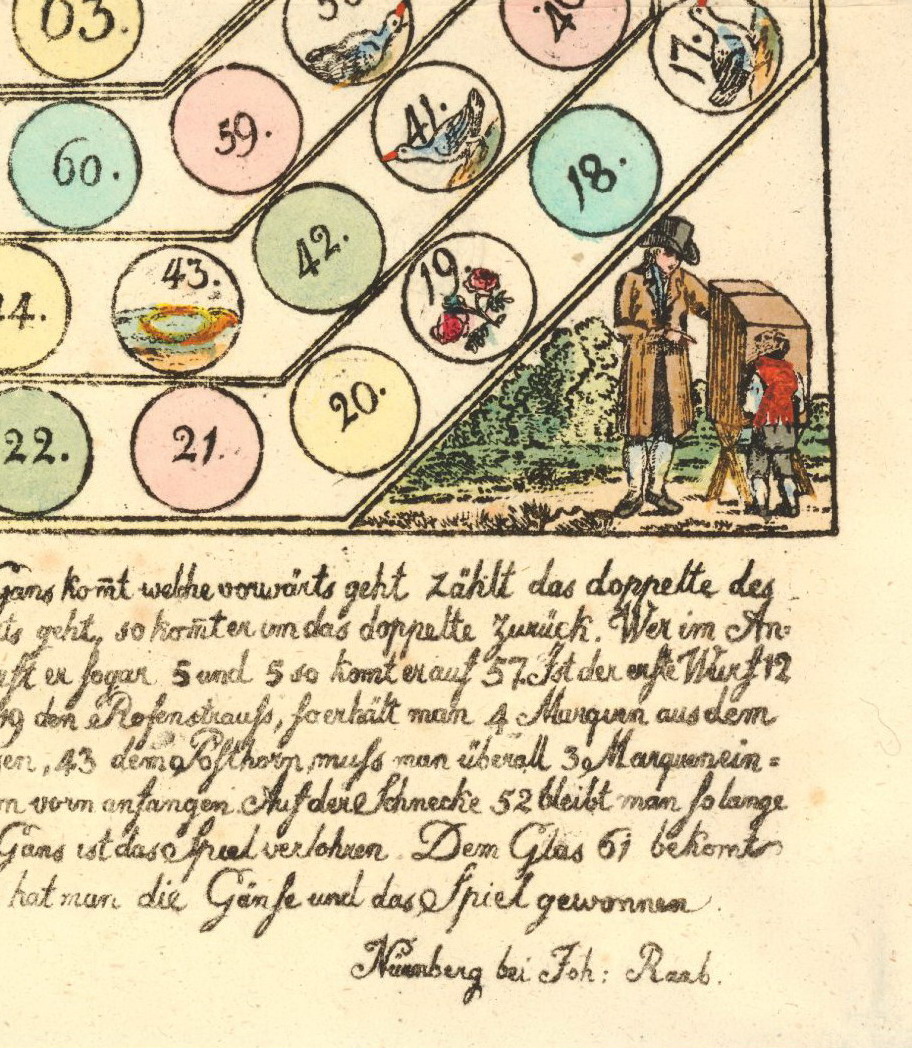 63.
17.
60.
59.
41.
18.
42.
43.
19.
20.
22.
21.
Gans kom̄t welche vorwärts geht zählt das doppelte des
ts geht, so kom̄t er um das doppelte zurück. Wer im An-
er sogar 5 und 5 so komt er auf 57. Ist der erste Wurf 12
19 den Rosenstrauss, so erhält man 4 Marquen aus dem
en, 43 dem Posthorn, muss man überall 3 Marquen ein=
n vorn anfangen. Auf der Schnecke 52 bleibt man so lange
Gans ist das Spiel verlohren. Dem Glas 61 bekomt
hat man die Gänse und das Spiel gewonnen.
Nürnberg bei Joh: Raab.